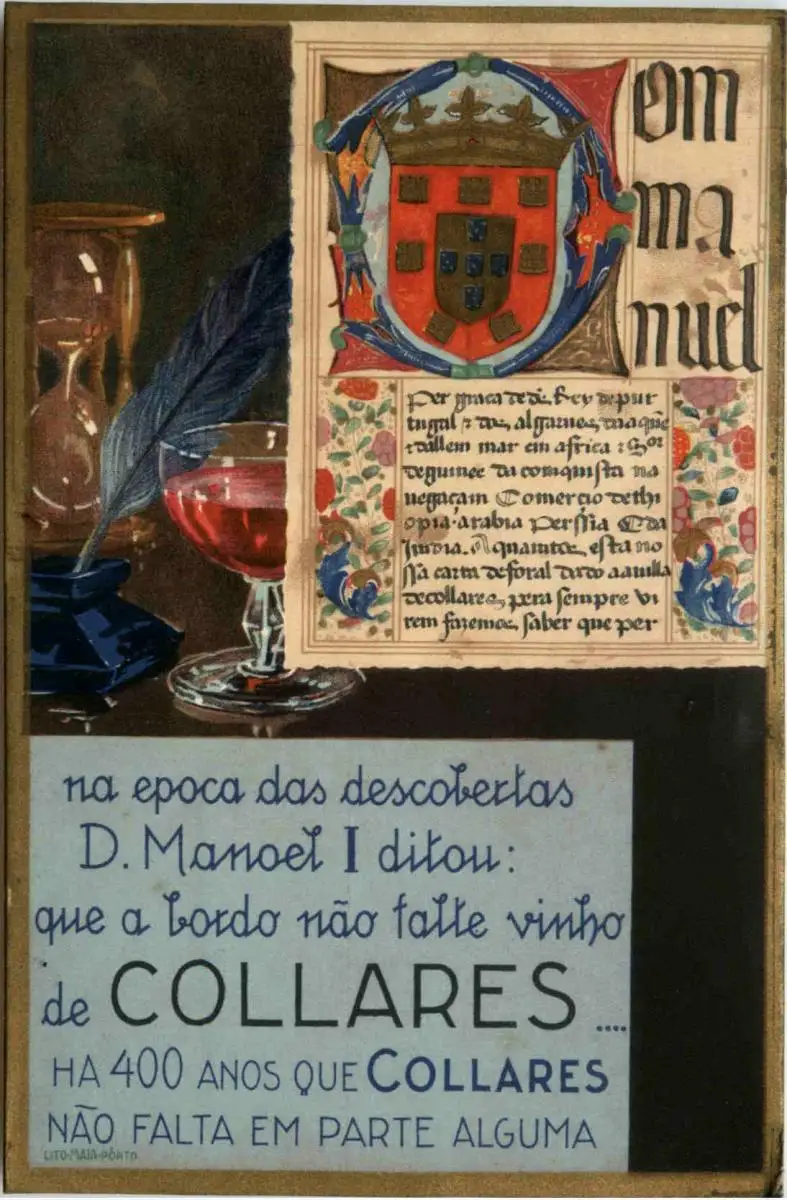 Dom
ma
nuel
Per graça de dẽ. Rey de pur
tugal ⁊ dos algarues, daaquẽ
⁊ dallem mar em africa ⁊ Sor
deguinee da comquista na
uegaçam Comercio dethi
opia, arabia perssia E da
Jmdia. A quamtos esta no
ssa carta deforal dado aauilla
decollares, pera sempre vi
rem fazemos, saber que per
na epoca das descobertas
D. Manoel I ditou:
que a bordo não falte vinho
de COLLARES ....
HA 400 ANOS QUE COLLARES
NÃO FALTA EM PARTE ALGUMA
LITO-MAIA-PÔRTO